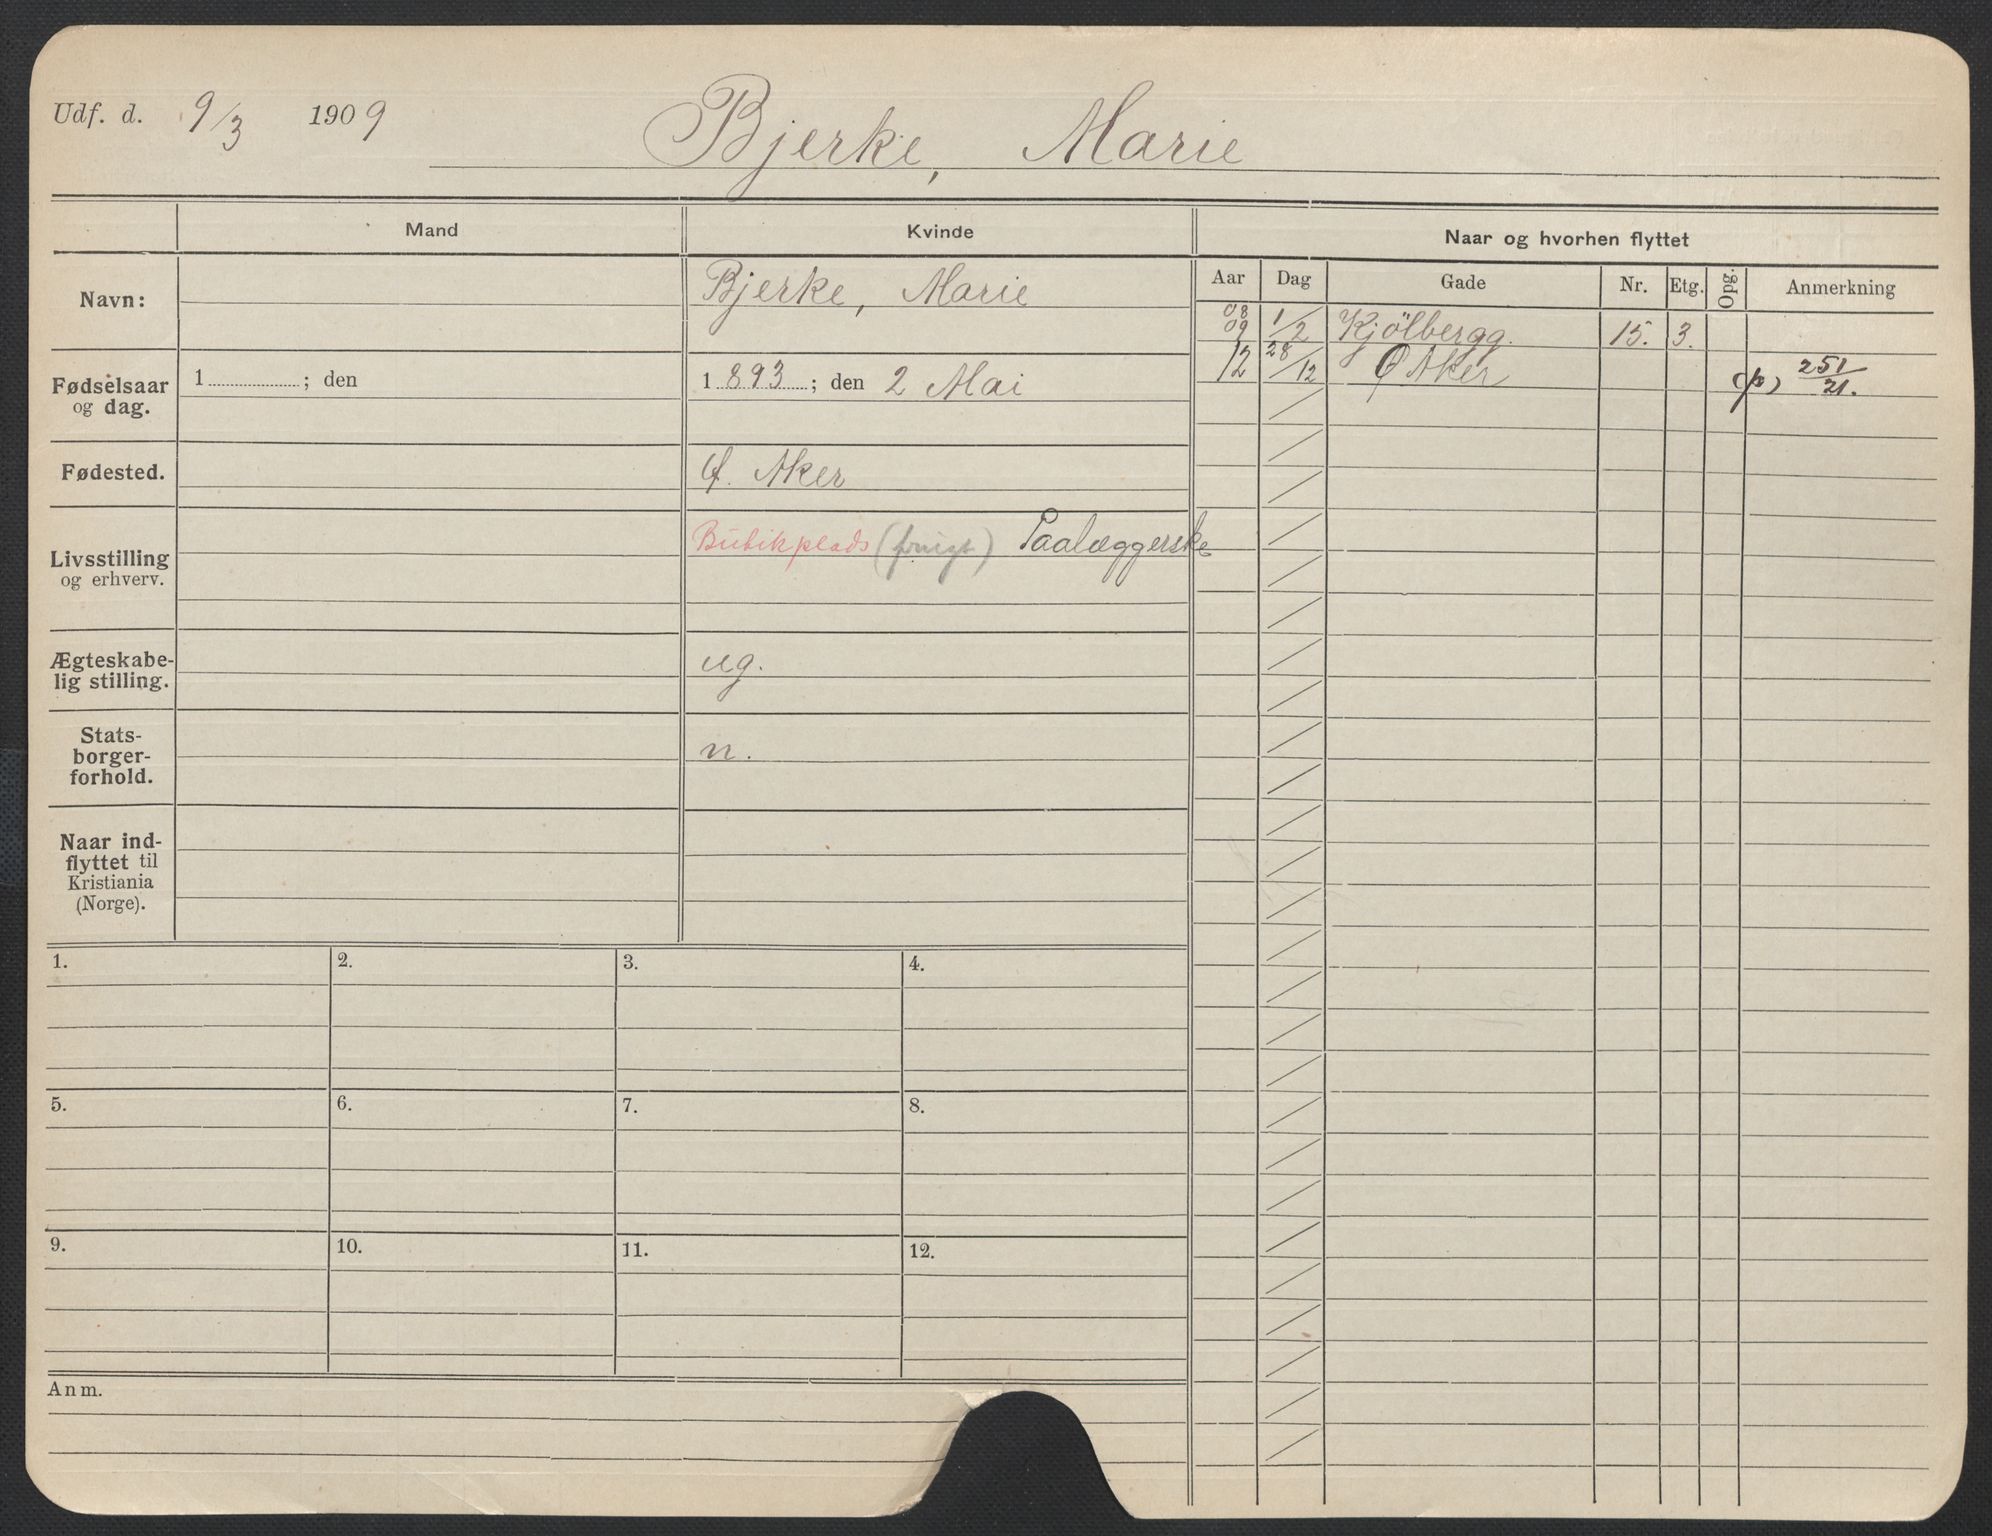 Udf. d. 9/3 1909 Bjerke, Marie
Mand Kvinde Naar og hvorhen flyttet
Aar Dag Gade Nr. Etg. Opg. Anmerkning
Navn: Bjerke, Marie
08
09 1/2 Kjölbergg. 15. 3.
12 28/12 Ø Aker 251/21.
Fødselsaar
og dag. 1 ; den 1893 ; den 2 Mai
Fødested. Ø. Aker
Livsstilling
og erhverv. Butikplads Paalæggerske
Ægteskabe-
lig stilling. ug.
Stats-
borger-
forhold. n.
Naar ind-
flyttet til
Kristiania
(Norge).
1. 2. 3. 4.
5. 6. 7. 8.
9. 10. 11. 12.
Anm.